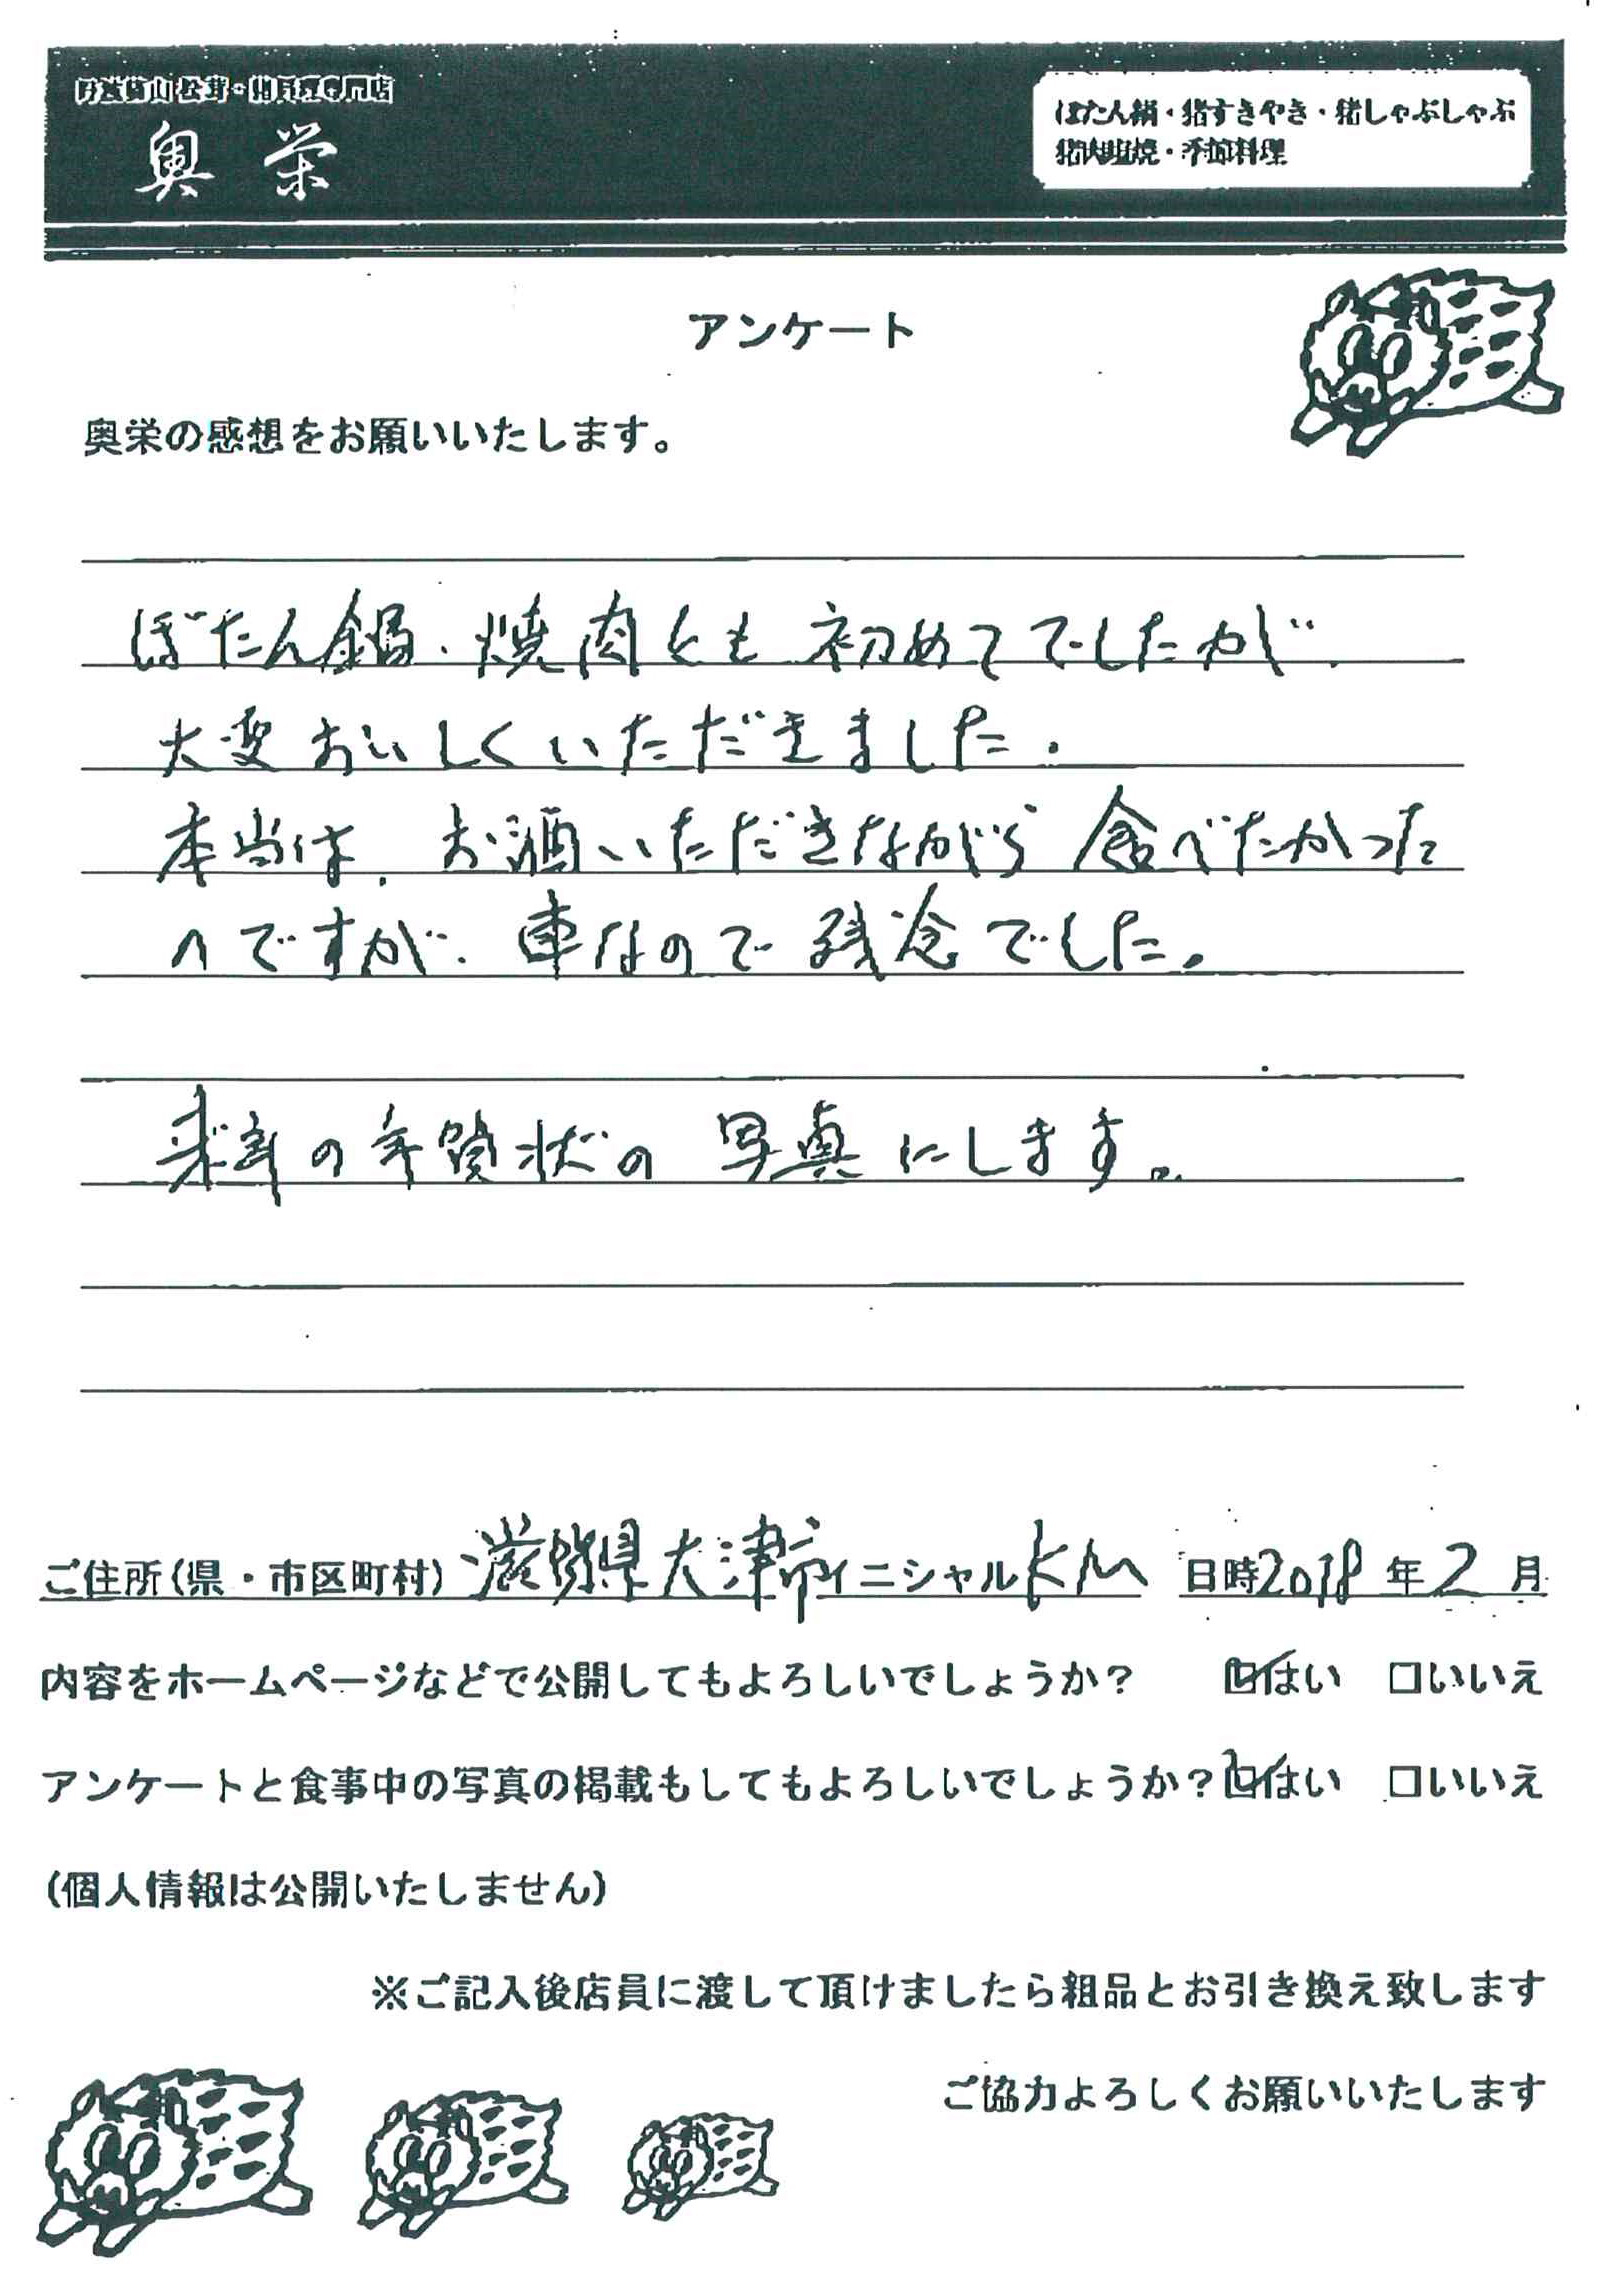 丹波篠山松茸・猪料理専門店
奥栄
ぼたん鍋・猪すきやき・猪しゃぶしゃぶ
猪肉塩焼・季節料理
アンケート
奥栄の感想をお願いいたします。
ぼたん鍋、焼肉とも初めてでしたが、
大変おいしくいただきました。
本当は、お酒いただきながら食べたかった
のですが、車なので残念でした。
来年の年賀状の写真にします。
ご住所(県・市区町村) 滋賀県大津市 イニシャル KM 日時2018年2月
内容をホームページなどで公開してもよろしいでしょうか? ☑はい □いいえ
アンケートと食事中の写真の掲載もしてもよろしいでしょうか? ☑はい □いいえ
(個人情報は公開いたしません)
※ご記入後店員に渡して頂けましたら粗品とお引き換え致します
ご協力よろしくお願いいたします